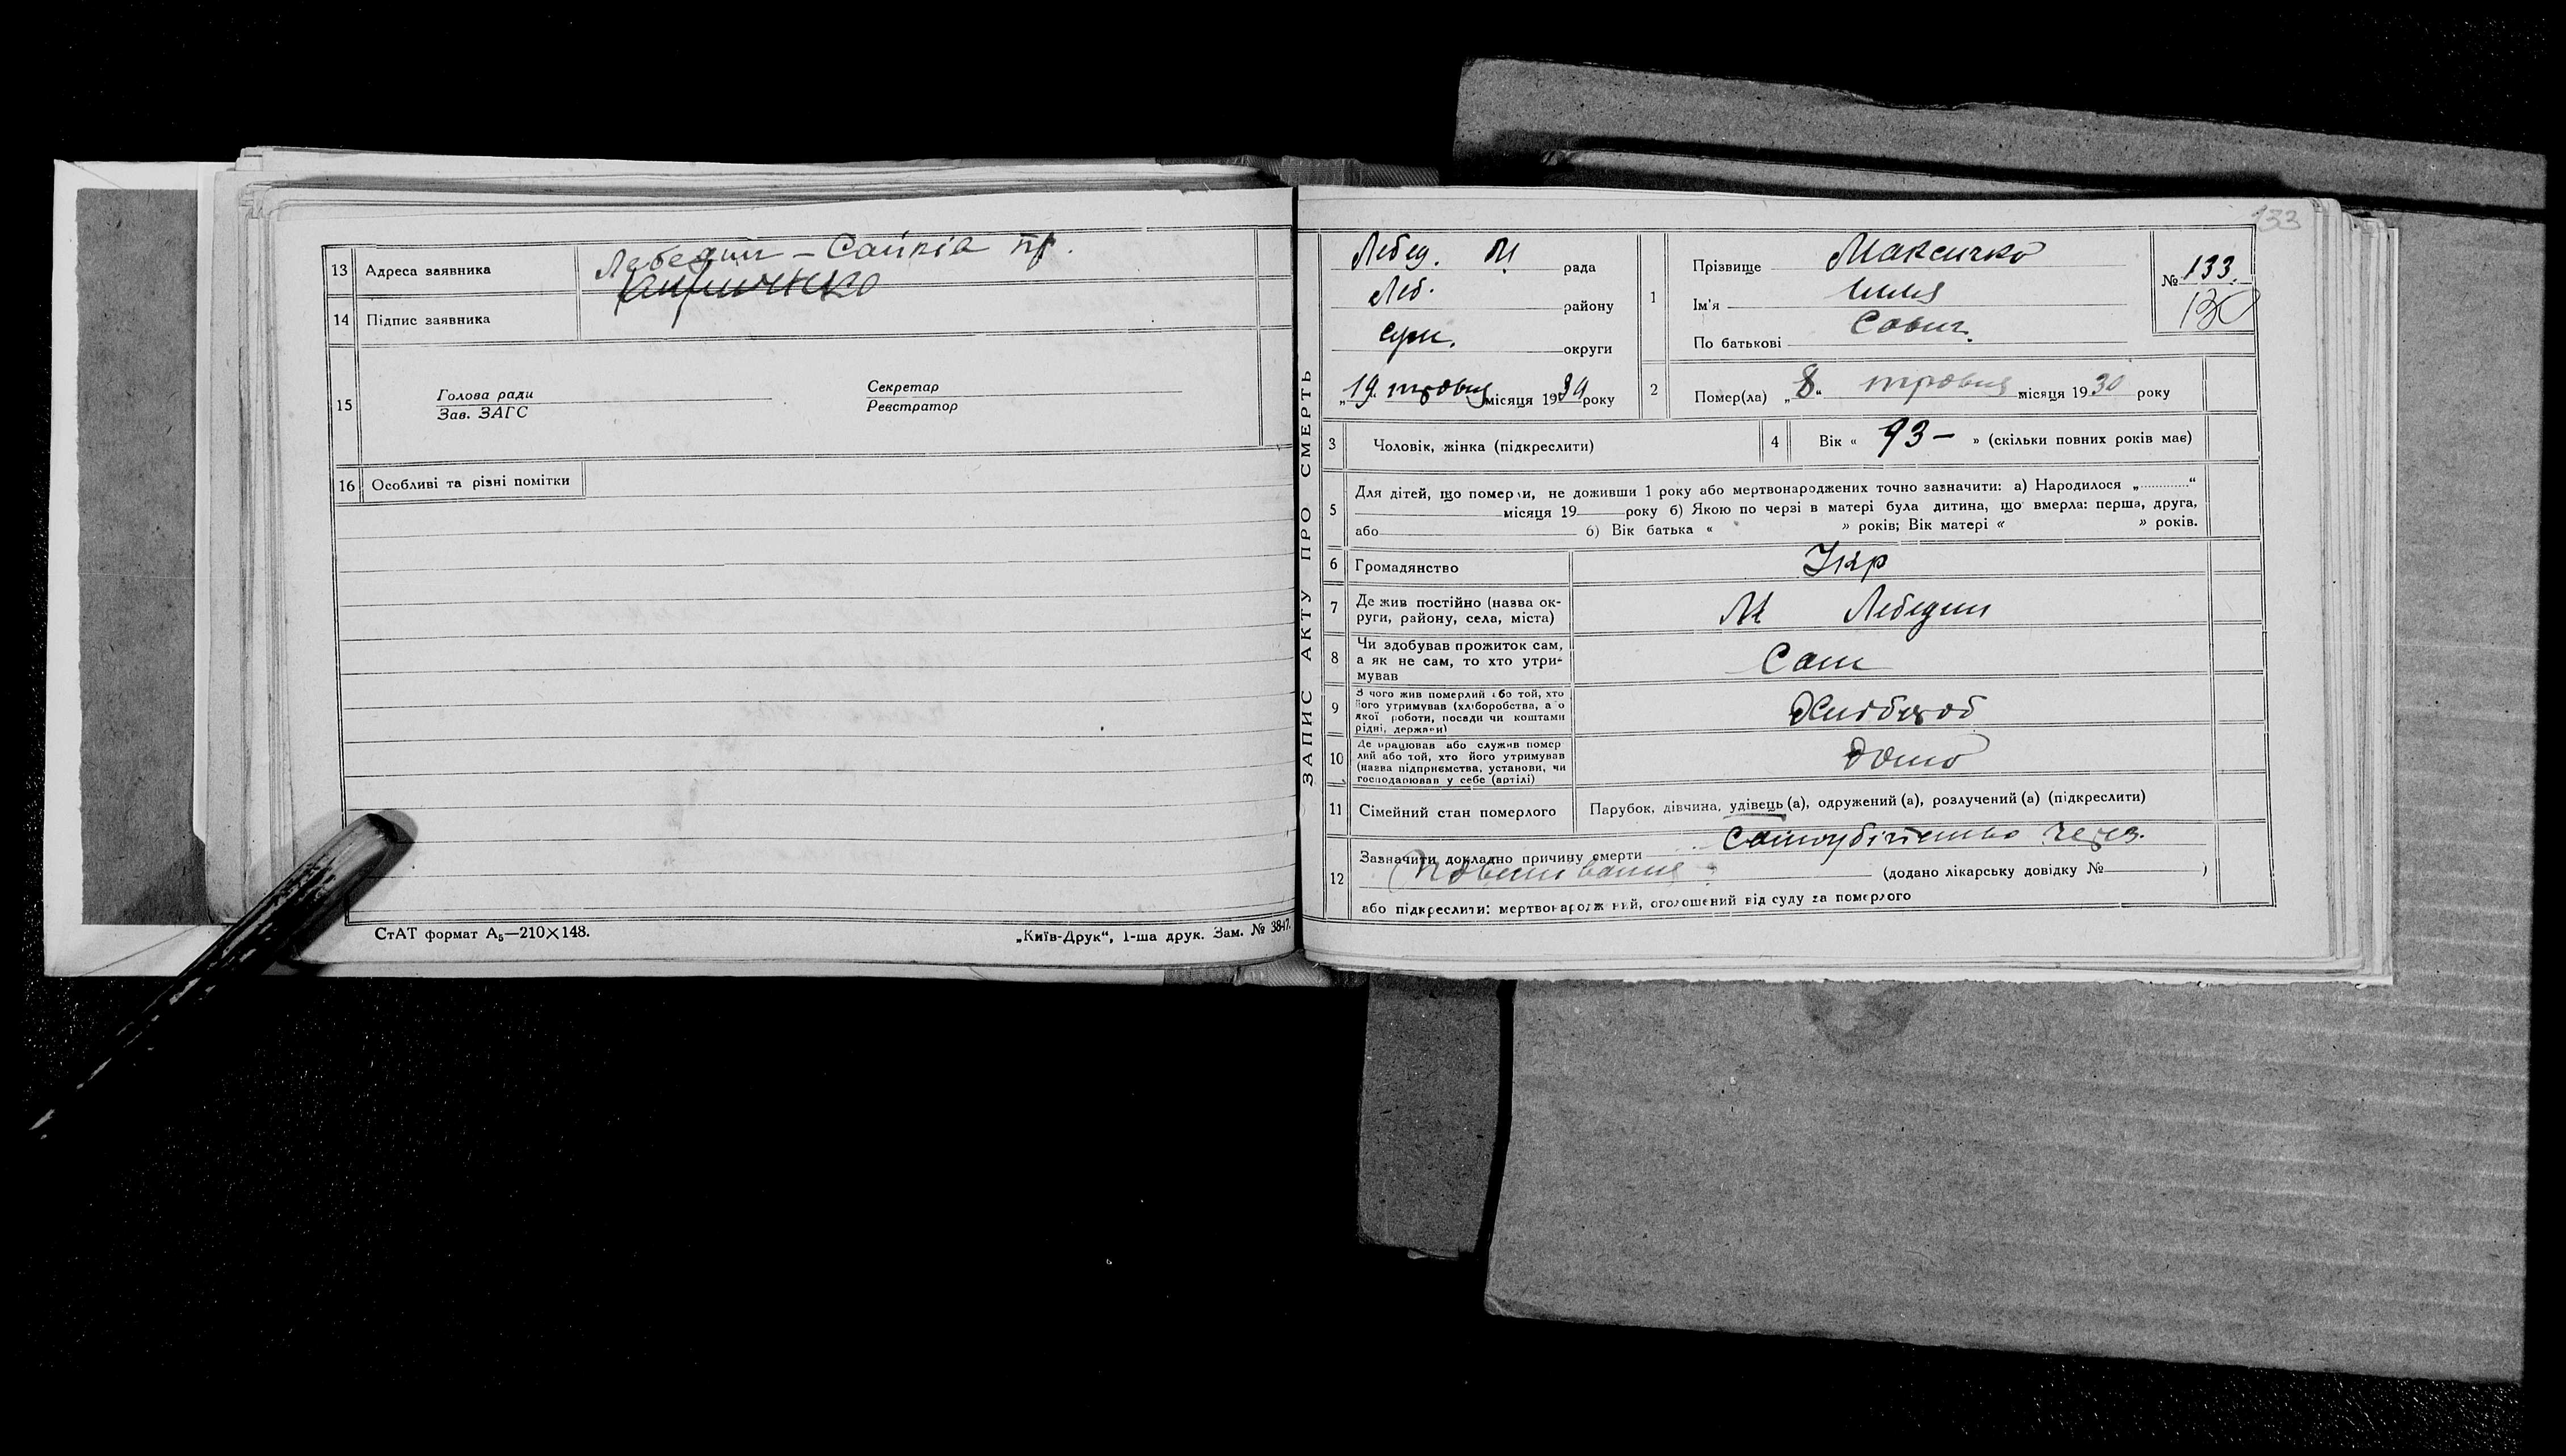 13 Адреса заявника Лебедин – Сайків пр.
14 Підпис заявника
15 Голова ради Секретар
Зав. ЗАГС Реєстратор
16 Особливі та різні помітки
СтАТ формат А₅—210×148.
„Київ-Друк“, 1-ша друк. Зам. № 3847.
133
ЗАПИС АКТУ ПРО СМЕРТЬ
Лебед. М рада
Леб. району
Сум. округи
„19 травня місяця 1930 року
1 Прізвище Максичко
Ім'я Илля
По батькові Савич.
№ 133.
130
2 Помер(ла) „8“ травня місяця 1930 року
3 Чоловік, жінка (підкреслити)
4 Вік « 93 – » (скільки повних років має)
5 Для дітей, що померли, не доживши 1 року або мертвонароджених точно зазначити: а) Народилося „ “
місяця 19 року б) Якою по черзі в матері була дитина, що вмерла: перша, друга,
або б) Вік батька « » років; Вік матері « » років.
6 Громадянство Укр
7 Де жив постійно (назва ок-
руги, району, села, міста) М Лебедин
8 Чи здобував прожиток сам,
а як не сам, то хто утри-
мував Сам
9 З чого жив померлий або той, хто
його утримував (хліборобства, а о
якої роботи, посади чи коштами
рідні, держави) Хлібороб
10 Де працював або служив помер
лий або той, хто його утримував
(назва підприємства, установи, чи
господарював у себе (артілі) дома
11 Сімейний стан померлого Парубок, дівчина, удівець (а), одружений (а), розлучений (а) (підкреслити)
12 Зазначити докладно причину смерти Самоубійство через
Повішування (додано лікарську довідку № )
або підкреслити: мертвонароджений, оголошений від суду за померлого